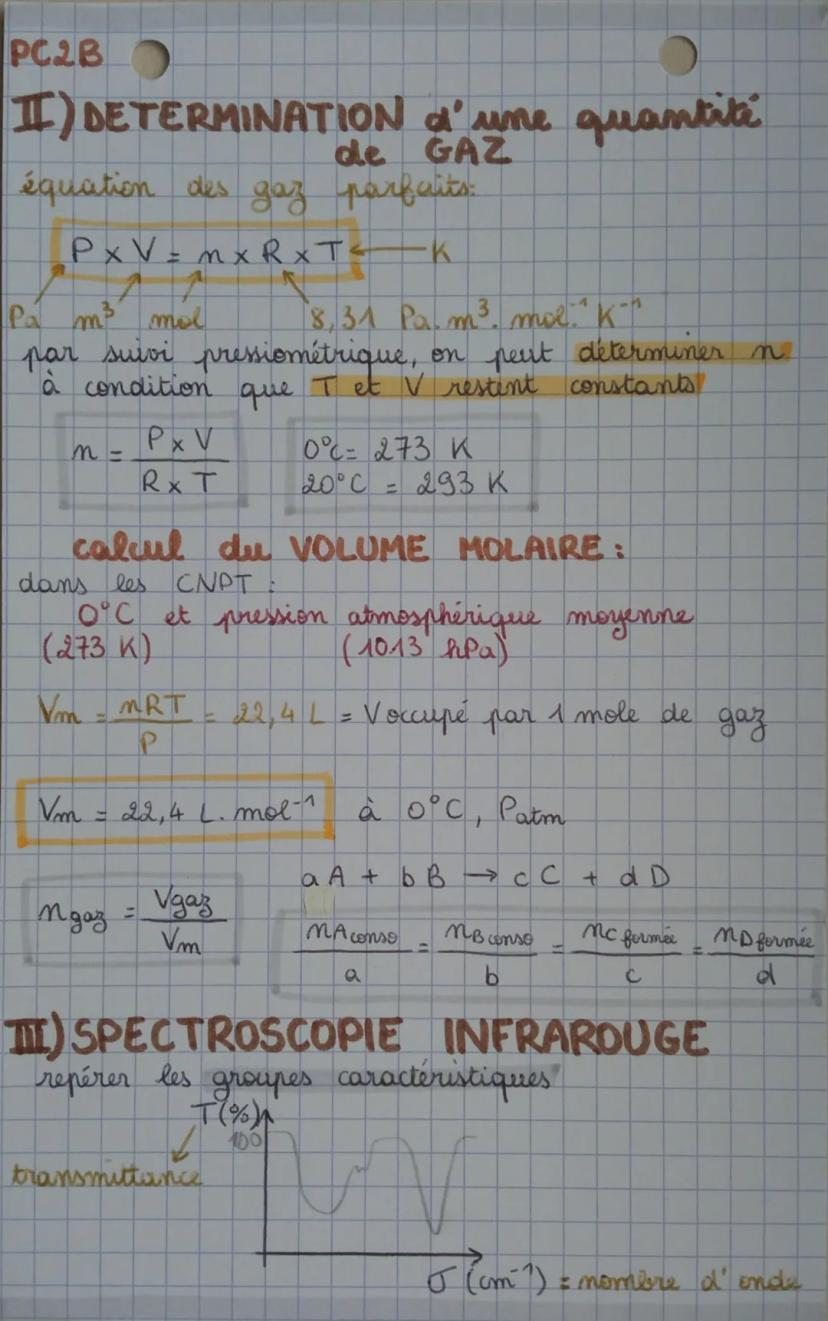 PC2B
II) DETERMINATION d'une quantité
de GAZ
équation des gaz parfaits:
P x V = n x R x T ← K
Pa m³ mol 8,31 Pa.m³.mol.⁻¹ K⁻¹
par suivi pressiométrique, on peut déterminer n
à condition que T et V restent constants
n = P x V / R x T
0°C = 273 K
20°C = 293 K
calcul du VOLUME MOLAIRE :
dans les CNPT :
0°C et pression atmosphérique moyenne
(273 K) (1013 hPa)
Vm = nRT / P = 22,4 L = V occupé par 1 mole de gaz
Vm = 22,4 L.mol⁻¹ à 0°C, Patm
aA + bB → cC + dD
n gaz = Vgaz / Vm
nA conso / a = nB conso / b = nC formée / c = nD formée / d
III) SPECTROSCOPIE INFRAROUGE
repérer les groupes caractéristiques
T(%)
100
transmittance
σ (cm⁻¹) = nombre d'onde